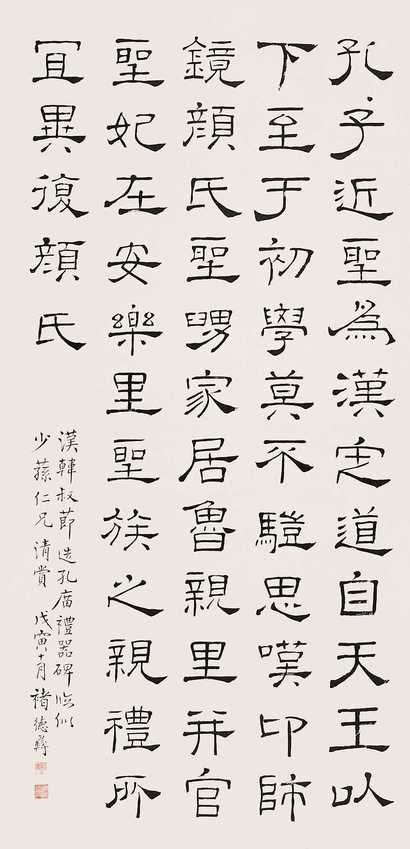 孔子近聖為漢定道自天王以
下至于初學莫不驥思嘆卬師
鏡顏氏聖舅家居魯親里并官
聖妃在安樂里聖族之親禮所
宜異復顏氏
漢韓叔節造孔廟禮器碑臨似
少蓀仁兄清賞 戊寅十月褚德彝